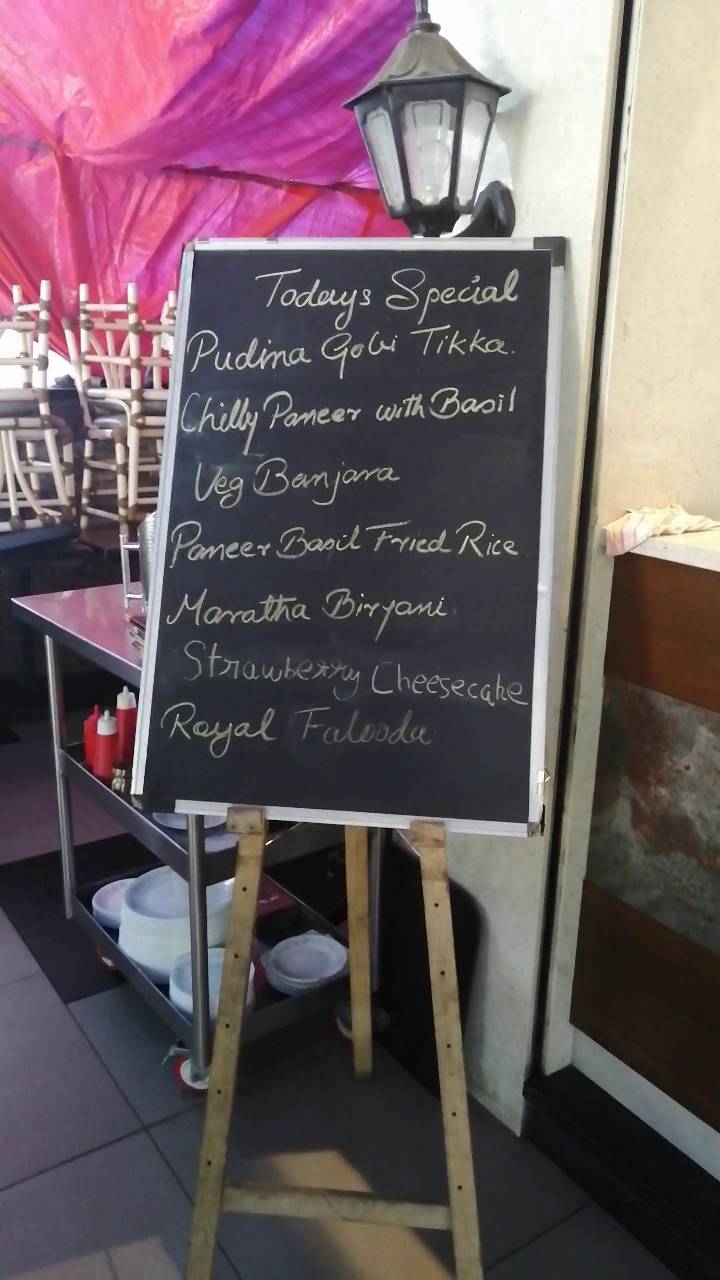 Todays Special
Pudina Gobi Tikka.
Chilly Paneer with Basil
Veg Banjara
Paneer Basil Fried Rice
Maratha Biryani
Strawberry Cheesecake
Royal Falooda